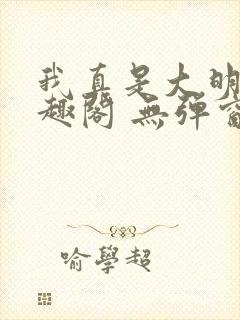 我真是大明
趣閣 無彈窗
喻學超